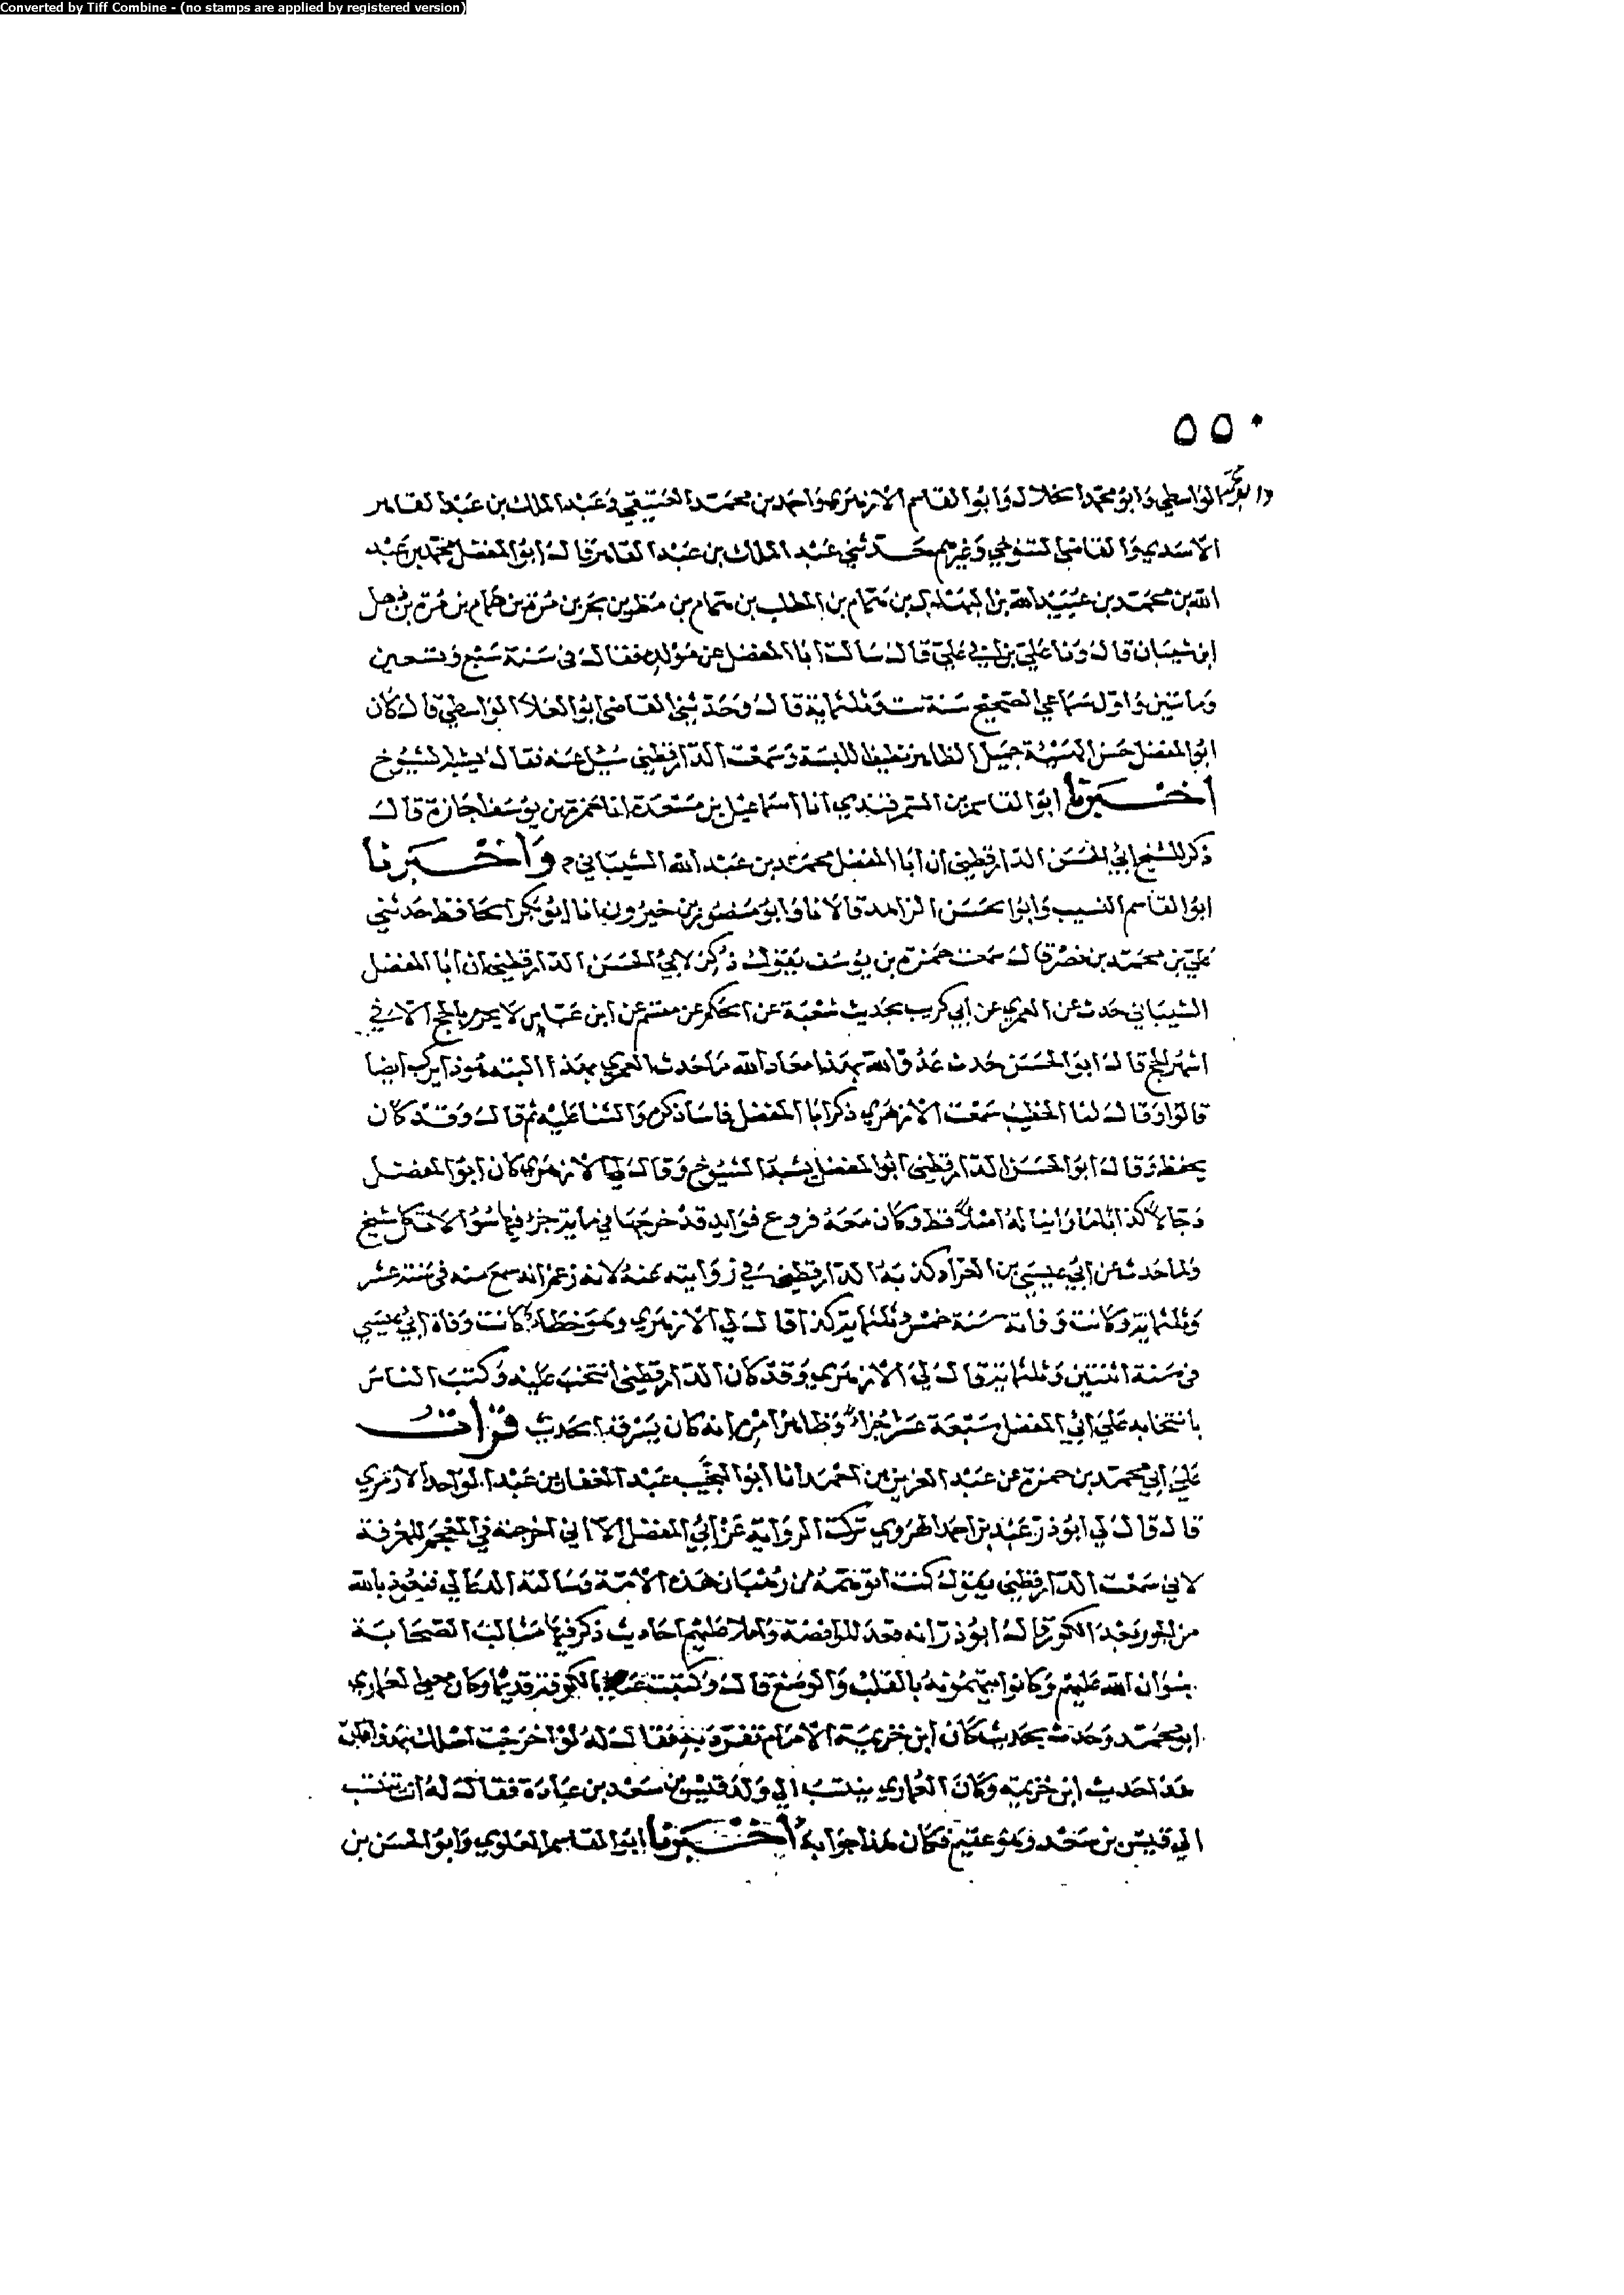 Converted by Tiff Combine - (no stamps are applied by registered version)
٥٥٠
الواسطي وابو محمد الخلال وابوا القاسم الازهري واحمد بن محمد العتيقي وعبد الملك بن عبد القاهر
الاسدي والقاضي التنوخي وغيرهم حدثني عبد الملك بن عبد القاهر قال ابوا المفضل محمد بن عبد
الله بن محمد بن عبيد الله بن البهلول بن همام بن المطلب بن همام بن مطر بن بحر بن مرة بن همام بن مرة بن ذهل
ابن شيبان قال ونا علي بن ابي علي قال سالت ابا المفضل عن مولده فقال في سنة سبع وتسعين
وماتين واول سماعي الصحيح سنة ست وثلثماية قال وحدثني القاضي ابوا العلا الواسطي قال كان
ابوا المفضل حسن الهيئة جميل الظاهر نظيف اللبسة وسمعت الدارقطني سئل عنه فقال يشبه الشيوخ
اخبرنا ابوا القاسم بن السمرقندي انا اسماعيل بن مسعدة انا حمزة بن يوسف اجازة قال
ذكر للشيخ ابي الحسن الدارقطني ان ابا المفضل محمد بن عبد الله الشيباني م واخبرنا
ابوا القاسم النسيب وابوا الحسن الزاهد قالا نا وابو منصور بن خيرون انا ابو بكر الحافظ حدثني
علي بن محمد بن نصر قال سمعت حمزة بن يوسف يقول ذكر لابي الحسن الدارقطني ان ابا المفضل
الشيباني حدث عن العمري عن ابي كريب بحديث شعبة عن الحكم عن مقسم عن ابن عباس لا يحرم بالحج الا في
اشهر الحج قال ابوا الحسن حدث عدو الله بهذا معاذ الله ما حدث العمري بهذا البتة هوذا يركب ايضا
قالوا وقال لنا الخطيب سمعت الازهري ذكر ابا المفضل فاسا ذكره والثنا عليه ثم قال وقد كان
يحفظ وقال ابوا الحسن الدارقطني ابوا المفضل يشبه الشيوخ وقال لي الازهري كان ابوا المفضل
دجالا كذابا ما راينا له اصلا قط وكان معه فروع فوايد قد خرجها في ماية جزء فيها سؤالات كل شيخ
ولما حدث عن ابي عيسى بن العراد كذبه الدارقطني في روايته عنه لانه زعم انه سمع منه في سنة عشر
وثلثماية وكانت وفاته سنة خمس وثلثماية كذا قال لي الازهري وهو خطا كانت وفاة ابي عيسى
في سنة اثنتين وثلثماية قال لي الازهري وقد كان الدارقطني انتخب عليه وكتب الناس
بانتخابه على ابي المفضل سبعة عشر جزا وظاهر امره انه كان يسرق الحديث قرات
على ابي محمد بن حمزة عن عبد العزيز بن احمد انا ابوا النجيب عبد الغفار بن عبد الواحد الارموي
قال قال لي ابو ذر عبد بن احمد الهروي تركت الرواية عن ابي المفضل الا اني اخرجته في المعجم للمعرفة
لاني سمعت الدارقطني يقول كنت اتوهمه من رهبان هذه الامة وسالته الدعا لي فنعوذ بالله
من الحور بعد الكور قال ابو ذر انه قعد للرافضة واملا عليهم احاديث ذكر فيها مثالب الصحابة
رضوان الله عليهم وكانوا يتهمونه بالقلب والوضع قال وكتبت عنه بالكوفة قديما وكان العماري
ابو محمد وحدث بحديث كان ابن خزيمة الامام تفرد به فقال له لو اخرجت اصلك بهذا فان
هذا حديث ابن خزيمة وكان العماري ينتسب الى ولد قيس بن سعد بن عبادة فقال له ان تنتسب
الى قيس بن سعد وهو عقيم فكان هذا جوابه اخبرنا ابوا القاسم العلوي وابوا الحسن بن